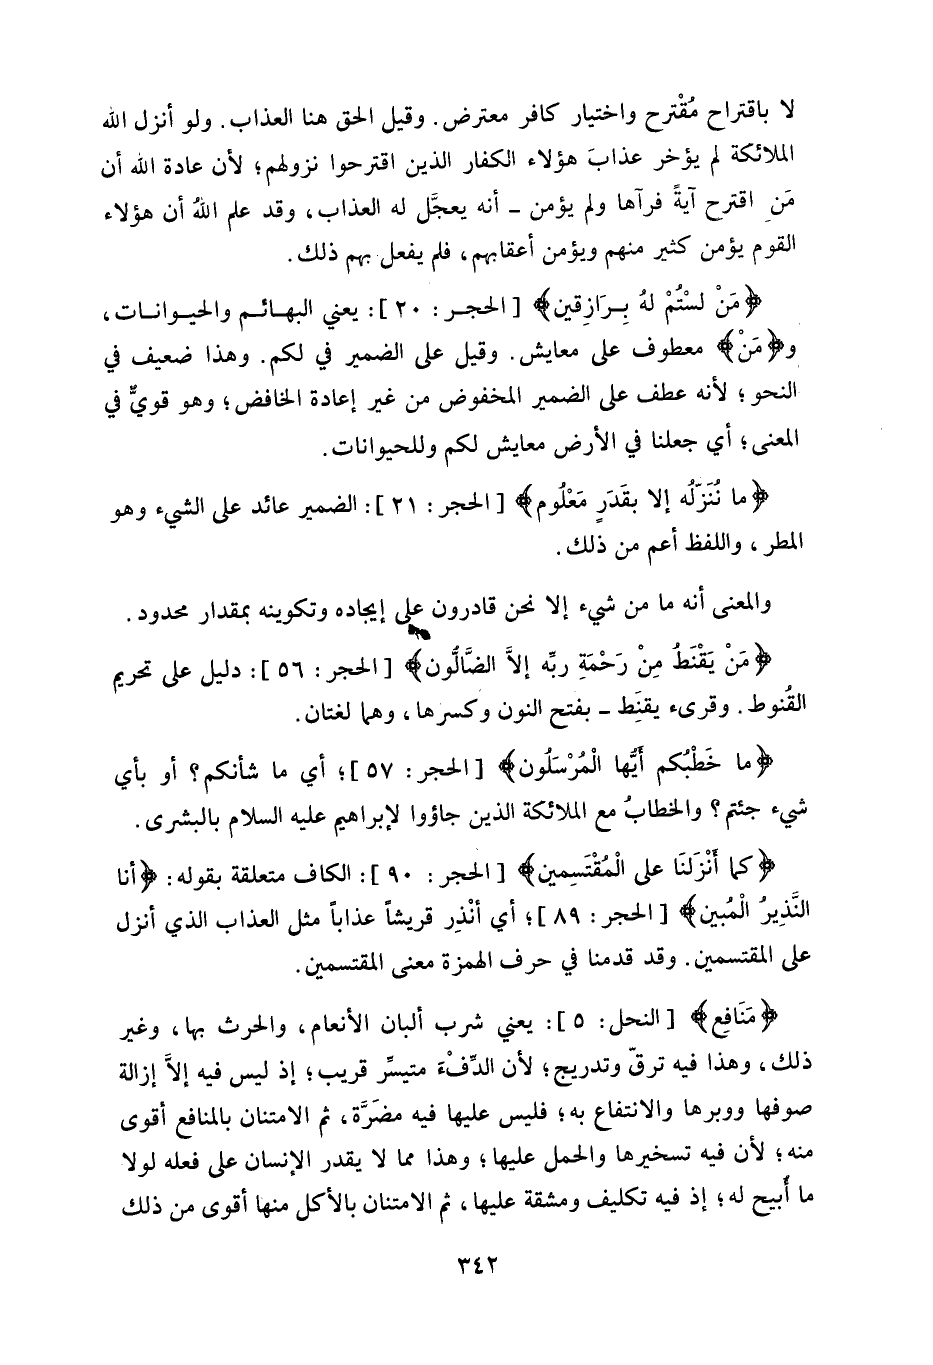 لا باقتراح مُقْترح واختيار كافر معترض. وقيل الحق هنا العذاب. ولو أنزل الله
الملائكة لم يؤخر عذابَ هؤلاء الكفار الذين اقترحوا نزولهم؛ لأن عادة الله أن
مَن اقترح آيةً فرآها ولم يؤمن - أنه يعجَّل له العذاب، وقد علم اللهُ أن هؤلاء
القوم يؤمن كثير منهم ويؤمن أعقابهم، فلم يفعل بهم ذلك.
﴿مَنْ لسْتُمْ لهُ بِرَازِقين﴾ [الحجر: ٢٠]: يعني البهائم والحيوانات،
و﴿مَنْ﴾ معطوف على معايش. وقيل على الضمير في لكم. وهذا ضعيف في
النحو؛ لأنه عطف على الضمير المخفوض من غير إعادة الخافض؛ وهو قويٌّ في
المعنى؛ أي جعلنا في الأرض معايش لكم وللحيوانات.
﴿ما نُنَزّلُه إلا بقَدَرٍ مَعْلُوم﴾ [الحجر: ٢١]: الضمير عائد على الشيء وهو
المطر، واللفظ أعم من ذلك.
والمعنى أنه ما من شيء إلا نحن قادرون على إيجاده وتكوينه بمقدار محدود.
﴿مَنْ يَقْنَطُ مِنْ رَحْمَةِ ربِّه إلاَّ الضَّالُّون﴾ [الحجر: ٥٦]: دليل على تحريم
القُنوط. وقرىء يقنَِط - بفتح النون وكسرها، وهما لغتان.
﴿ما خَطْبُكم أَيُّها الْمُرْسَلُون﴾ [الحجر: ٥٧]؛ أي ما شأنكم؟ أو بأي
شيء جئتم؟ والخطابُ مع الملائكة الذين جاؤوا لإبراهيم عليه السلام بالبشرى.
﴿كما أَنْزَلنَا على الْمُقْتَسِمين﴾ [الحجر: ٩٠]: الكاف متعلقة بقوله: ﴿أنا
النَّذِيرُ الْمُبين﴾ [الحجر: ٨٩]؛ أي أنْذِر قريشاً عذاباً مثل العذاب الذي أنزل
على المقتسمين. وقد قدمنا في حرف الهمزة معنى المقتسمين.
﴿مَنَافِع﴾ [النحل: ٥]: يعني شرب ألبان الأنعام، والحرث بها، وغير
ذلك، وهذا فيه ترقّ وتدريج؛ لأن الدِّفْءَ متيسِّر قريب؛ إذ ليس فيه إلاَّ إزالة
صوفها ووبرها والانتفاع به؛ فليس عليها فيه مضَرَّة، ثم الامتنان بالمنافع أقوى
منه؛ لأن فيه تسخيرها والحمل عليها؛ وهذا مما لا يقدر الإنسان على فعله لولا
ما أُبيح له؛ إذ فيه تكليف ومشقة عليها، ثم الامتنان بالأكل منها أقوى من ذلك
٣٤٢